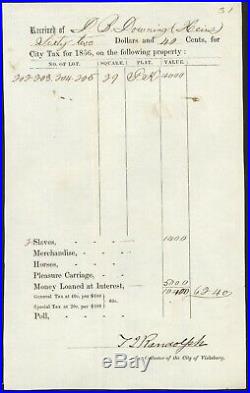 31
Received of J. B. Downing (Heirs)
Sixty two Dollars and 40 Cents, for
City Tax for 1856, on the following property:
NO. OF LOT. SQUARE. PLAT. VALUE.
202-203-204-205 29 4000
Slaves, 1400
Merchandise,
Horses,
Pleasure Carriage,
Money Loaned at Interest, 5000
General Tax at 40c. per $100 } 60c. 10400 62.40
Special Tax at 20c. per $100
Poll,
Randolph
Collector of the City of Vicksburg.